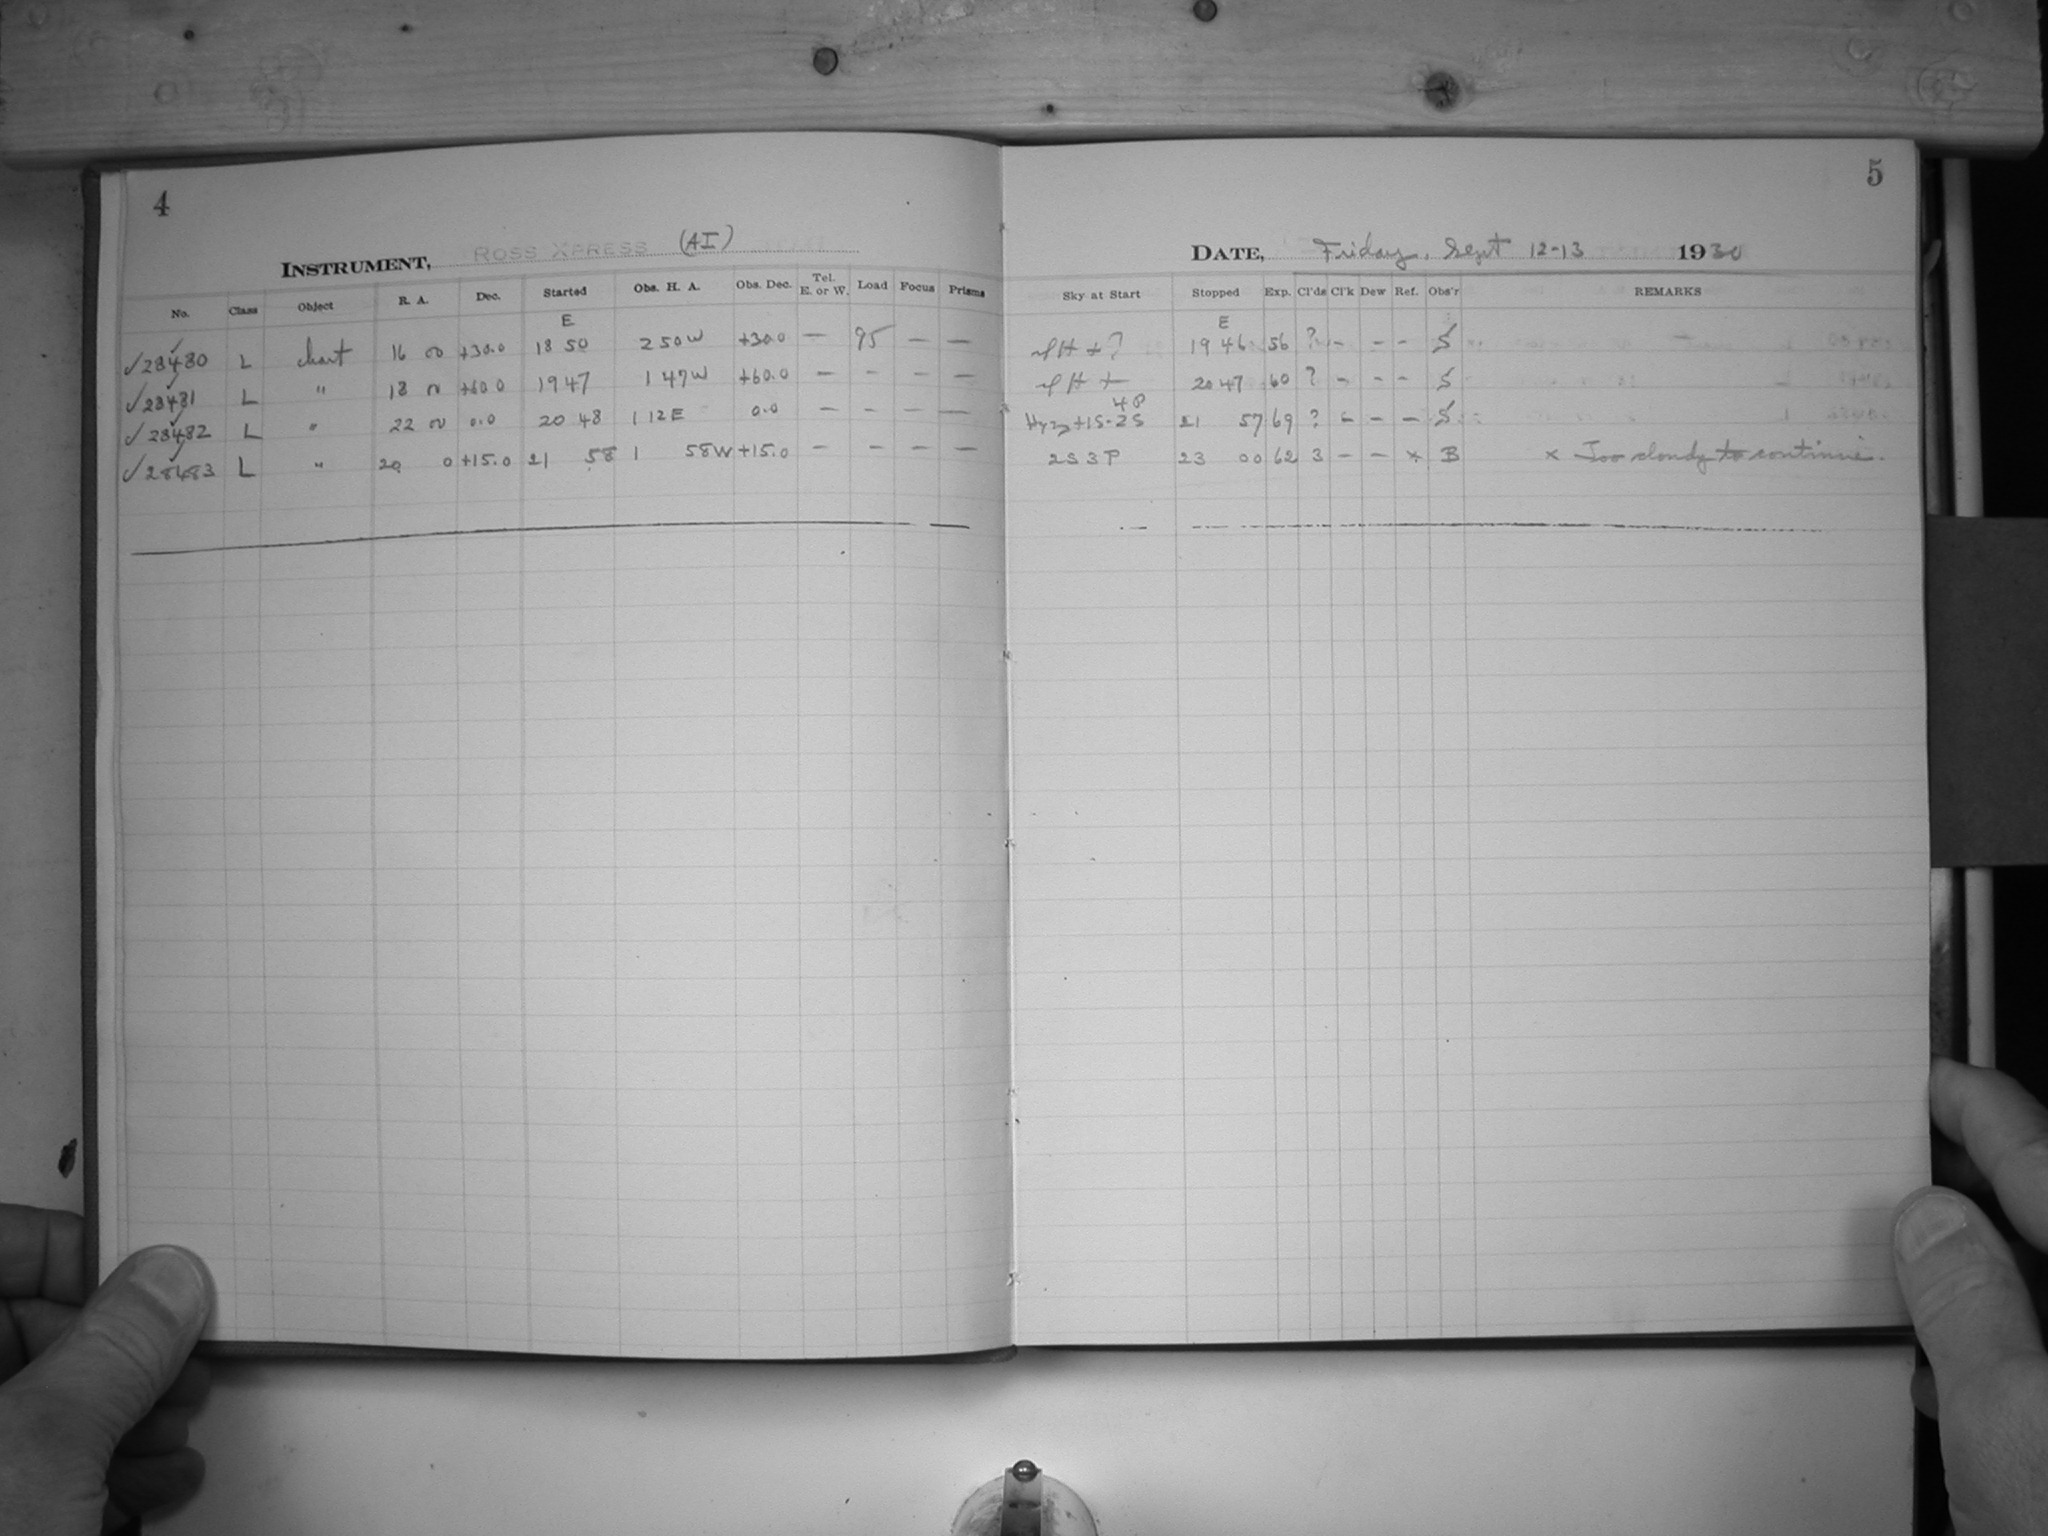 4
INSTRUMENT, ROSS XPRESS (AI)
No. Class Object R. A. Dec. Started Obs. H. A. Obs. Dec. Tel. E. or W. Load Focus Prisms
E
✓28480 L chart 16 00 +30.0 18 50 2 50W +30.0 — 95 — —
✓28481 L " 18 00 +60.0 19 47 1 47W +60.0 — - — —
✓28482 L " 22 00 0.0 20 48 1 12E 0.0 — - — —
✓28483 L " 20 0 +15.0 21 58 1 58W +15.0 — - — —
5
DATE, Friday, Sept 12-13 1930
Sky at Start Stopped Exp. Cl'ds Cl'k Dew Ref. Obs'r REMARKS
E
19 46 56 ? - - - S
20 47 60 ? - - - S
4P
+1S-2S 21 57 69 ? - - - S
2S 3P 23 00 62 3 - - × B × Too cloudy to continue.